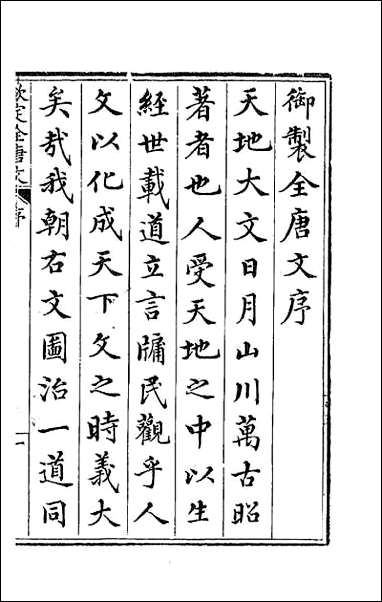 御製全唐文序
天地大文日月山川萬古昭
著者也人受天地之中以生
經世載道立言牖民觀乎人
文以化成天下文之時義大
矣哉我朝右文圖治一道同
欽定全唐文 序 一